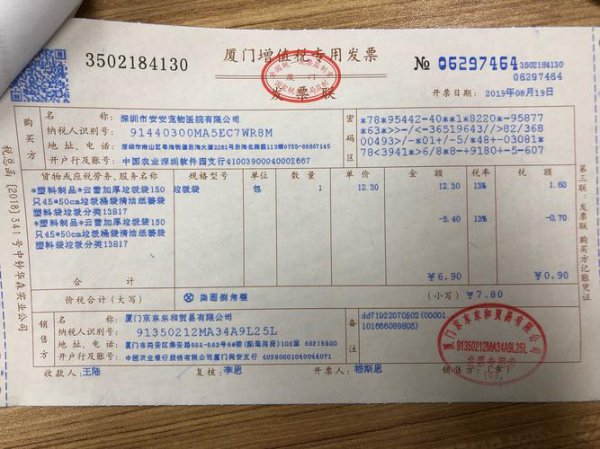 3502184130
厦门增值税专用发票
№ 06297464
3502184130
06297464
发票联
开票日期：2019年08月19日
税总函[2018]341号中钞华森实业公司
购买方
名称：深圳市安安宠物医院有限公司
纳税人识别号：91440300MA5EC7WR8M
地址、电话：
0755-86667145
开户行及账号：中国农业深圳软件园支行41003900040002667
密码区
*78*95442-40**1*8220*-95877
*63*>>-/<-36519643//>82/368
00493>/-*01+/-5/*48+-03081*
78<3941*>6/8*8-+9180+-5-607
货物或应税劳务、服务名称 规格型号 单位 数量 单价 金额 税率 税额
*塑料制品*云蕾加厚垃圾袋150 垃圾袋 包 1 12.30 12.30 13% 1.60
只45*50cm垃圾桶袋清洁纸篓袋
塑料袋垃圾分类13817
*塑料制品*云蕾加厚垃圾袋150 -5.40 13% -0.70
只45*50cm垃圾桶袋清洁纸篓袋
塑料袋垃圾分类13817
合计 ￥6.90 ￥0.90
价税合计（大写） ⊗ 柒圆捌角整 （小写）￥7.80
销售方
名称：厦门京东东和贸易有限公司
纳税人识别号：91350212MA34A9L25L
地址、电话：
开户行及账号：中国农业银行股份有限公司厦门同安支行 40390001040044071
备注
dd71922070502(00001
,101666089805)
收款人：王陆 复核：李思 开票人：嵇斯思 销售方：（章）
厦门京东东和贸易有限公司
91350212MA34A9L25L
发票专用章
第三联：发票联 购买方记账凭证